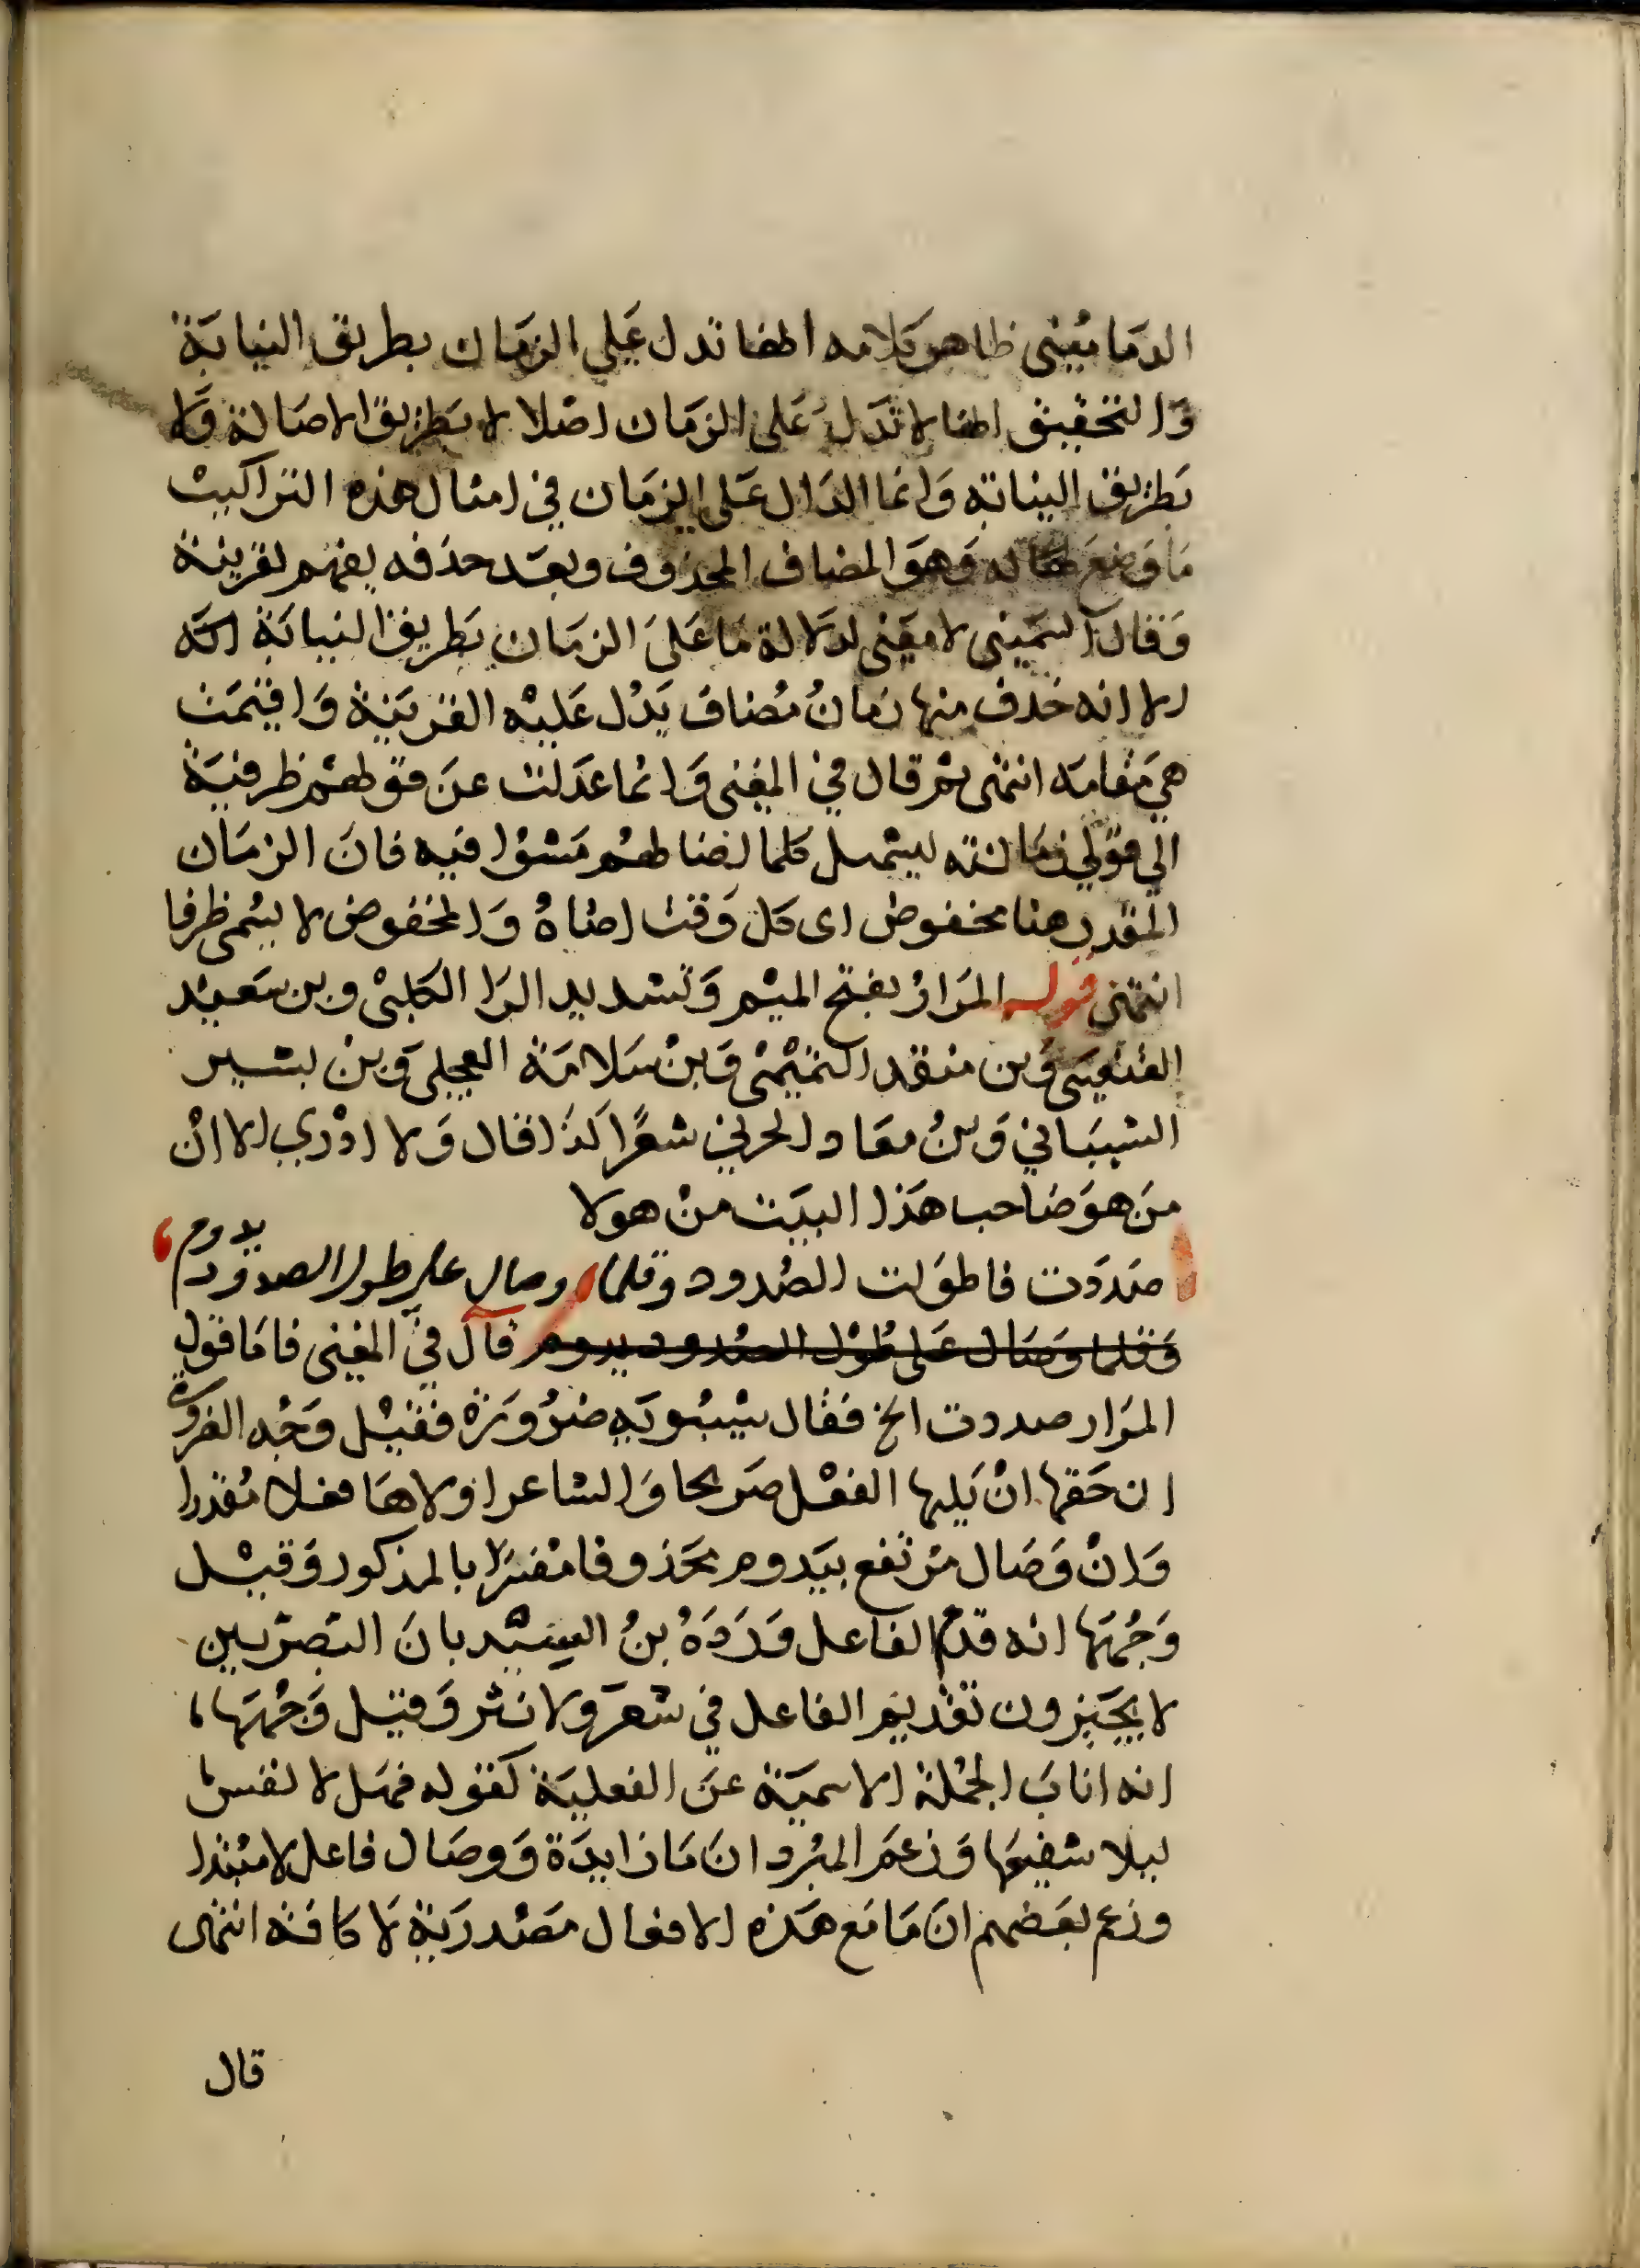 الدمامينى ظاهر كلامه انها تدل على الزمان بطريق النيابة
والتحقيق انها لا تدل على الزمان اصلا لا بطريق الاصالة ولا
بطريق النيابة وانما الدال على الزمان في امثال هذه التراكيب
ما وضع له وهو المضاف المحذوف وبعد حذفه يفهم لقرينة
وقال الشمينى لا معنى لدلالة ما على الزمان بطريق النيابة
الا انه حذف منها زمان مضاف يدل عليه القرينة واقيمت
هي مقامه انتهى ثم قال في المغنى وانما عدلت عن قولهم ظرفية
الي قولي زمانية ليشمل كلما اضا لهم مشوا فيه فان الزمان
المقدر هنا مخفوض اى كل وقت اضاة والمخفوض لا يسمى ظرفا
انتهى قوله المرار بفتح الميم وتشديد الرا الكلبى وبن سعيد
الفقعسى وبن منقد التميمى وبن سلامة العجلى وبن بشير
الشيباني وبن معاد الحرني شعرا كذا قال ولا ادري الا ان
من هو صاحب هذا البيت من هولا
صددت فاطولت الصدود وقلما وصال على طول الصدود يدوم
وقلما وصال على طول الصدود يدوم قال في المغنى فاما قول
المرار صددت الخ فقال سيبويه ضرورة فقيل وجه الضرورة
ان حقها ان يليها الفعل صريحا والشاعر اولاها فعلا مقدرا
وان وصال مرتفع بيدوم محذوفا مفسرا بالمذكور وقيل
وجهها انه قدم الفاعل ورده بن السيد بان البصريين
لا يجيزون تقديم الفاعل في شعر ولا نثر وقيل وجهها
انه اناب الجملة الاسمية عن الفعلية كقوله فهلا نفس
ليلا شفيعها وزعم المبرد ان ما زايدة ووصال فاعل لا مبتدا
وزعم بعضهم ان ما مع هذه الافعال مصدرية لا كافة انتهى
قال